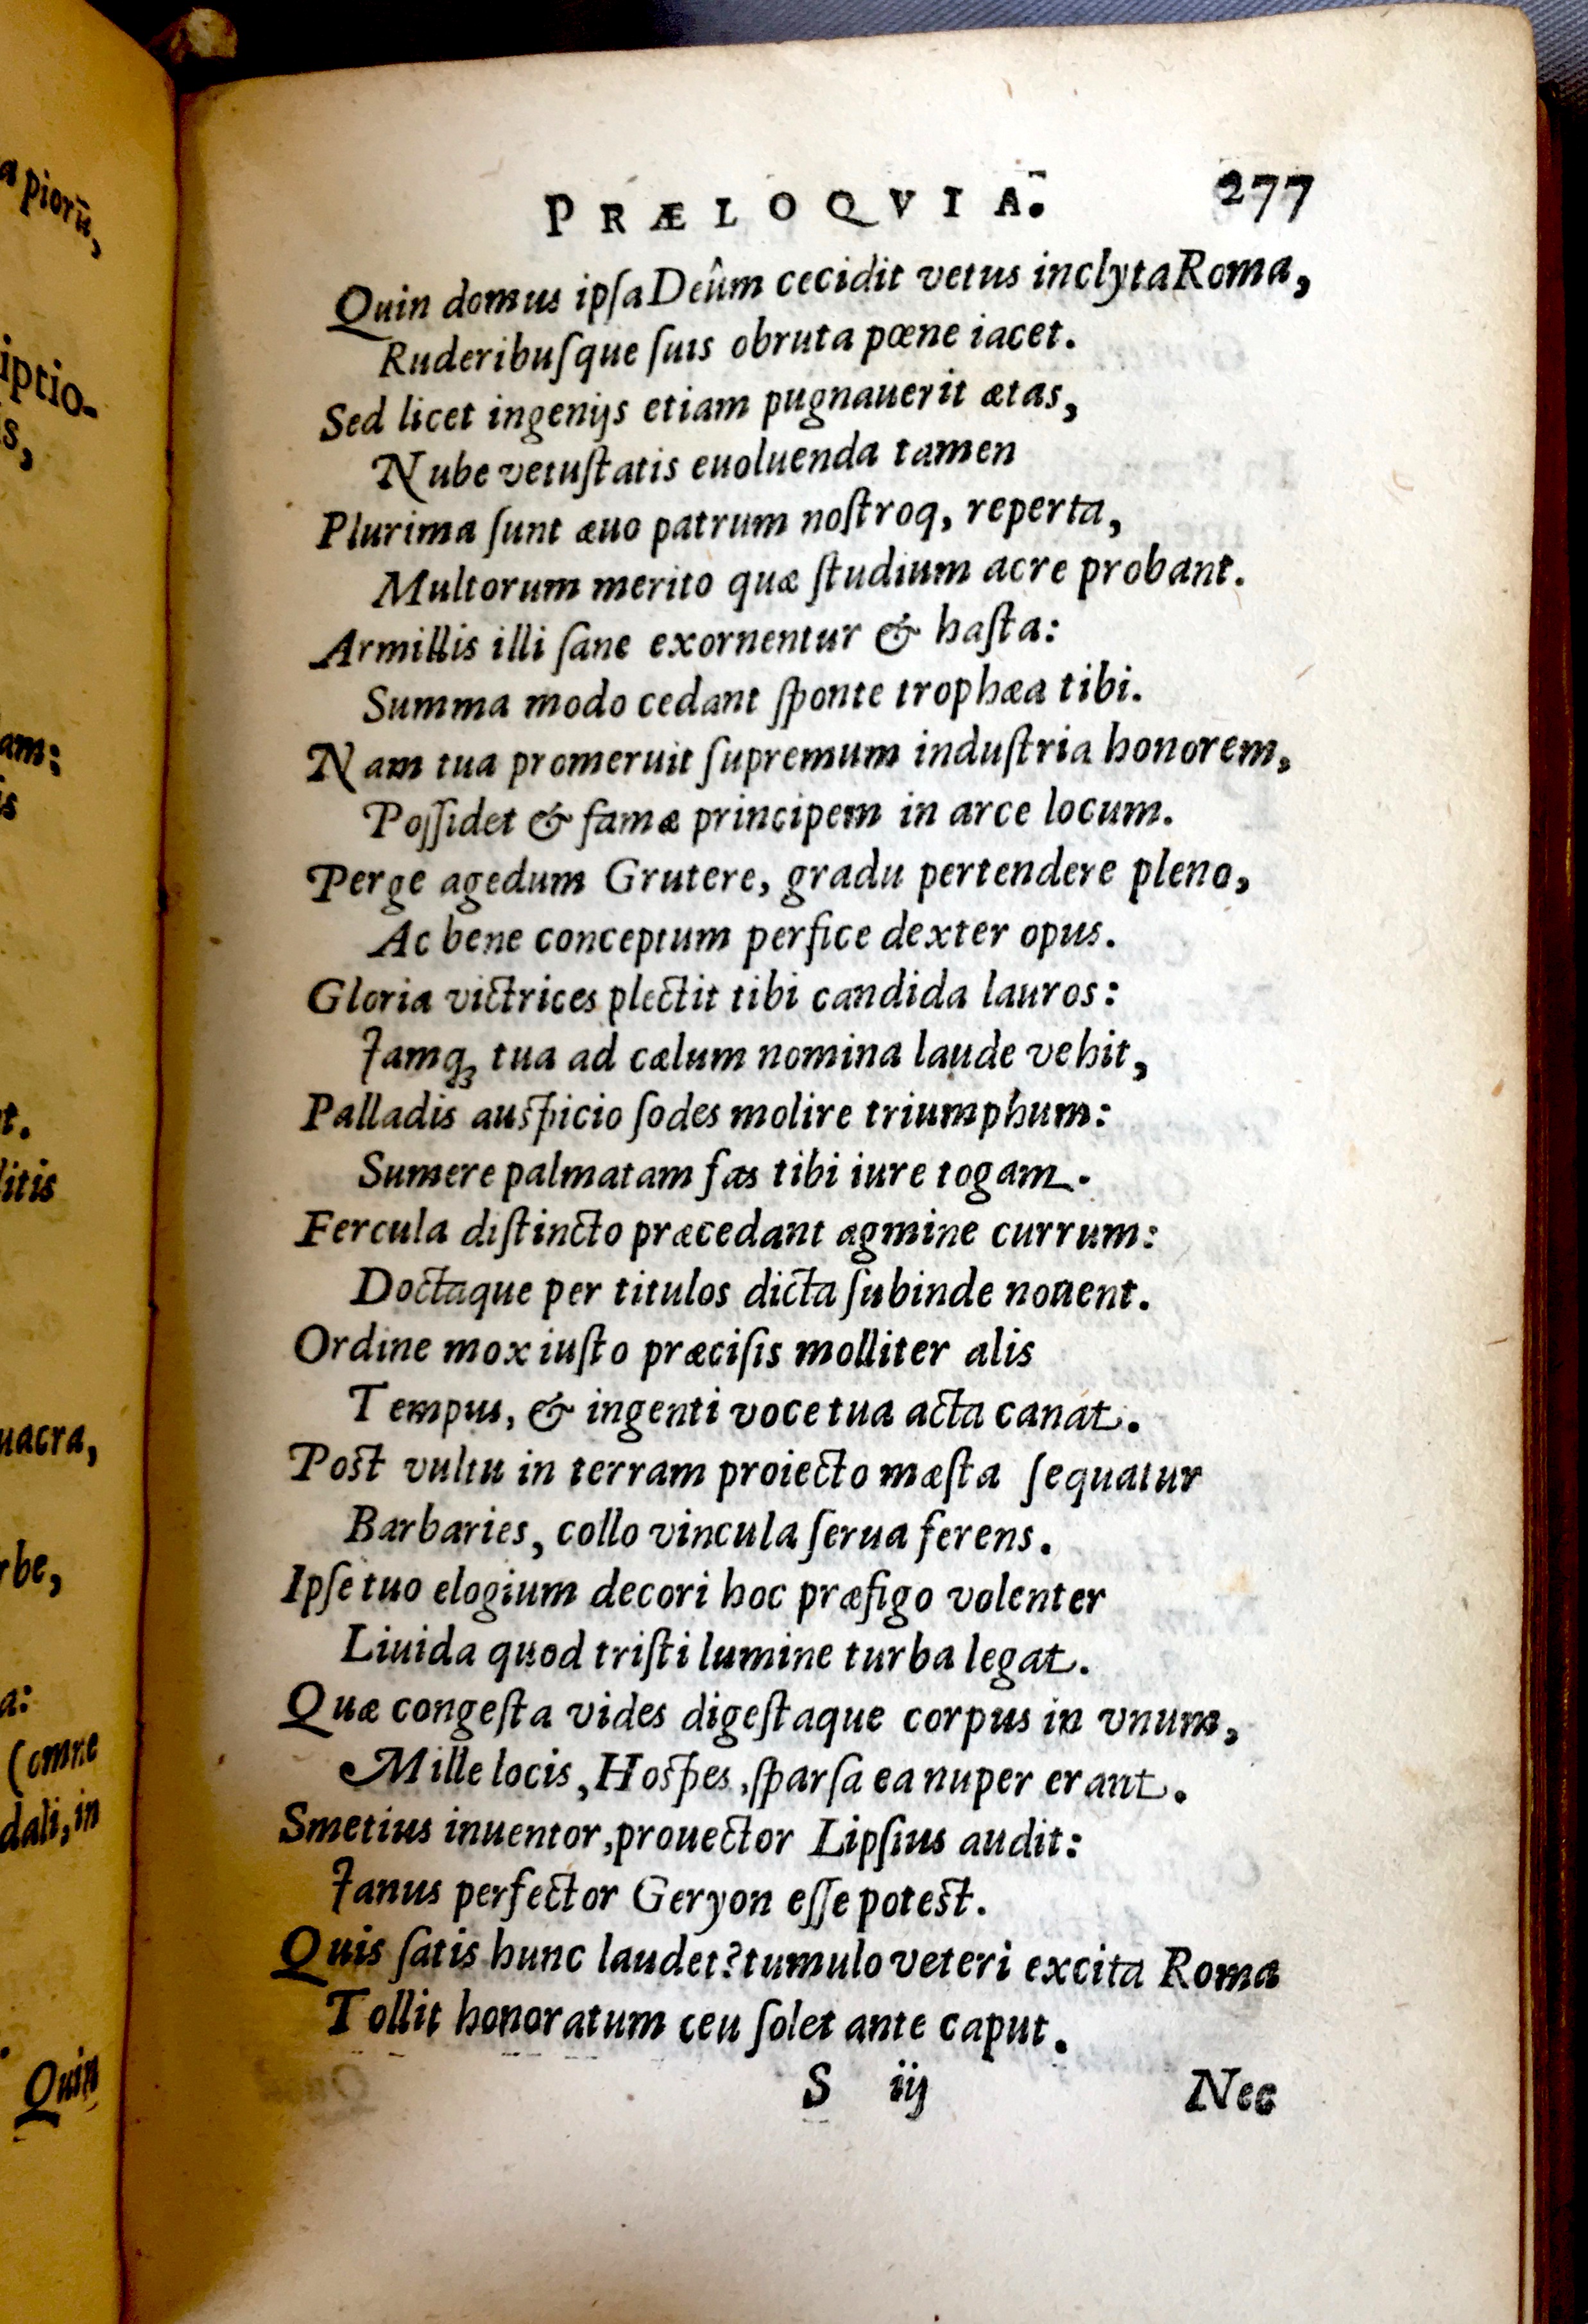 a piorū,
iptio-
s,
am:
is
t.
litis
uacra,
rbe,
a:
(omne
dali, in
Quin
PRÆLOQVIA. 277
Quin domus ipſa Deûm cecidit vetus inclyta Roma,
Ruderibuſque ſuis obruta pœne iacet.
Sed licet ingenijs etiam pugnauerit ætas,
Nube vetuſtatis euoluenda tamen
Plurima ſunt æuo patrum noſtroq, reperta,
Multorum merito quæ ſtudium acre probant.
Armillis illi ſane exornentur & haſta:
Summa modo cedant ſponte trophæa tibi.
Nam tua promeruit ſupremum induſtria honorem,
Poſſidet & famæ principem in arce locum.
Perge agedum Grutere, gradu pertendere pleno,
Ac bene conceptum perfice dexter opus.
Gloria victrices plectit tibi candida lauros:
Jamq; tua ad cælum nomina laude vehit,
Palladis auſpicio ſodes molire triumphum:
Sumere palmatam fas tibi iure togam.
Fercula diſtincto præcedant agmine currum:
Doctaque per titulos dicta ſubinde nouent.
Ordine mox iuſto præciſis molliter alis
Tempus, & ingenti voce tua acta canat.
Poſt vultu in terram proiecto mæſta ſequatur
Barbaries, collo vincula ſerua ferens.
Ipſe tuo elogium decori hoc præfigo volenter
Liuida quod triſti lumine turba legat.
Quæ congeſta vides digeſtaque corpus in vnum,
Mille locis, Hoſpes, ſparſa ea nuper erant.
Smetius inuentor, prouector Lipſius audit:
Janus perfector Geryon eſſe poteſt.
Quis ſatis hunc laudet? tumulo veteri excita Roma
Tollit honoratum ceu ſolet ante caput.
S iij Nec